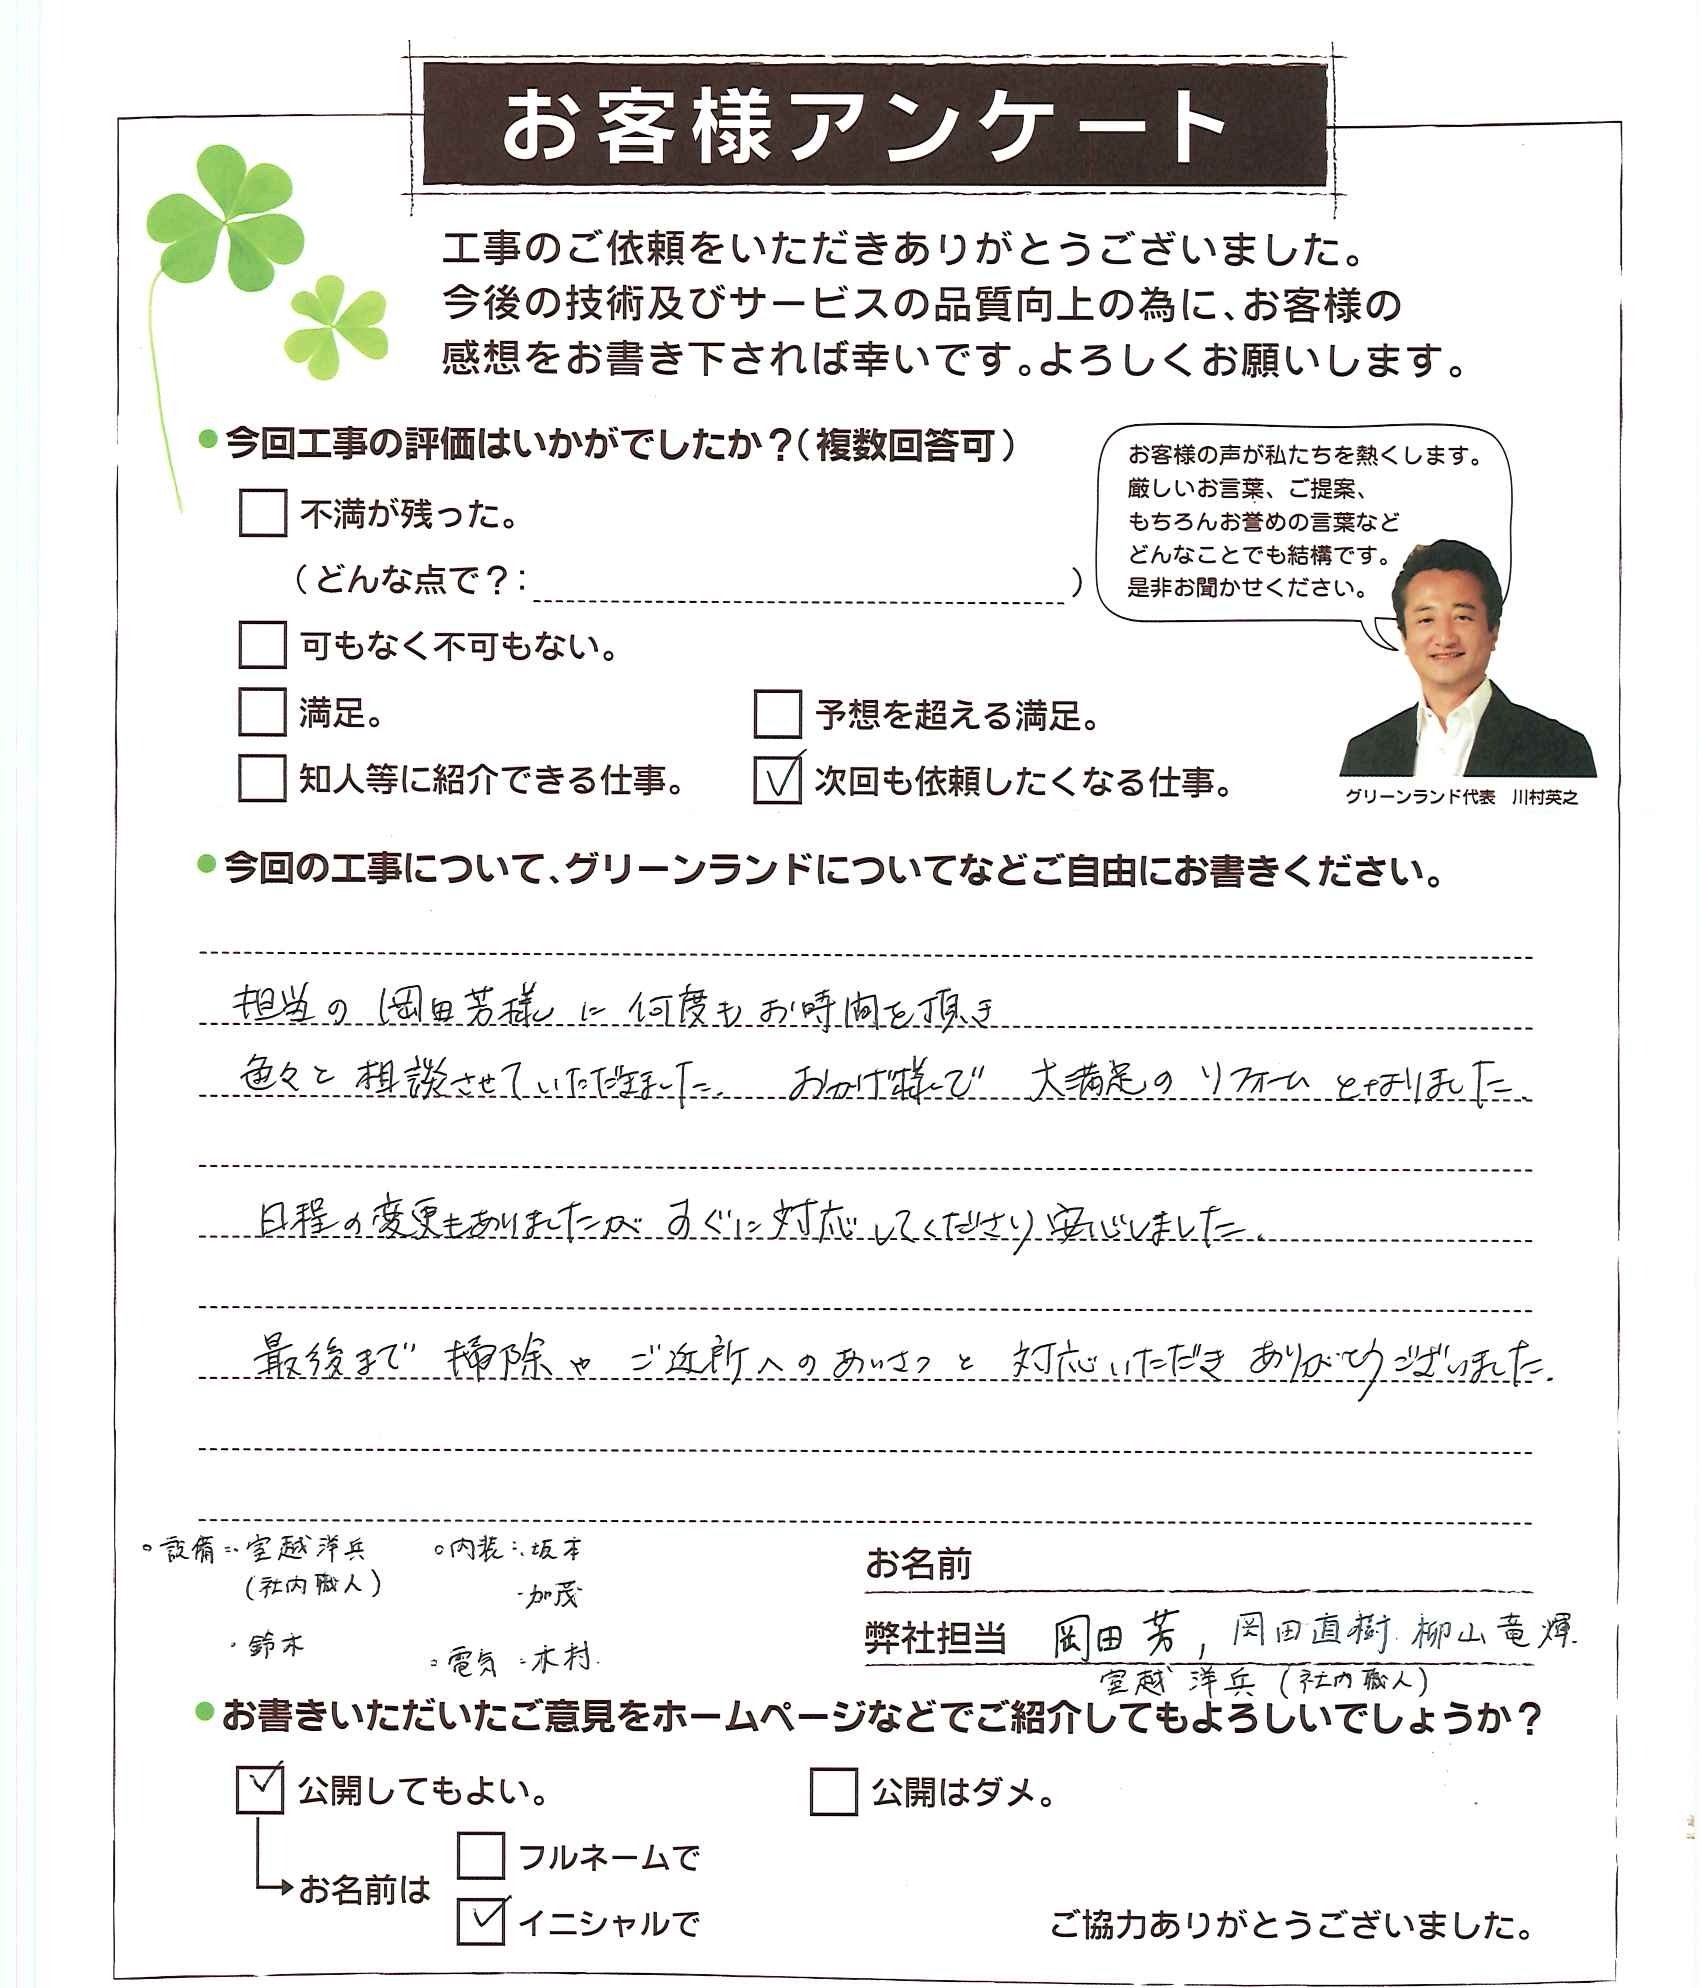 お客様アンケート
工事のご依頼をいただきありがとうございました。
今後の技術及びサービスの品質向上の為に、お客様の
感想をお書き下されば幸いです。よろしくお願いします。
●今回工事の評価はいかがでしたか？（複数回答可）
不満が残った。
（どんな点で？：　）
可もなく不可もない。
満足。
予想を超える満足。
知人等に紹介できる仕事。
次回も依頼したくなる仕事。
お客様の声が私たちを熱くします。
厳しいお言葉、ご提案、
もちろんお誉めの言葉など
どんなことでも結構です。
是非お聞かせください。
グリーンランド代表　川村英之
●今回の工事について、グリーンランドについてなどご自由にお書きください。
担当の岡田芳様に何度もお時間を頂き
色々と相談させていただきました。おかげ様で大満足のリフォームとなりました。
日程の変更もありましたがすぐに対応してくださり安心しました。
最後まで掃除やご近所へのあいさつと対応いただきありがとうございました。
○設備：・室越洋兵
（社内職人）
・鈴木
○内装：・坂本
・加茂
○電気：木村
お名前
弊社担当　岡田芳，岡田直樹．柳山竜輝．
室越洋兵（社内職人）
●お書きいただいたご意見をホームページなどでご紹介してもよろしいでしょうか？
公開してもよい。
公開はダメ。
お名前は
フルネームで
イニシャルで
ご協力ありがとうございました。